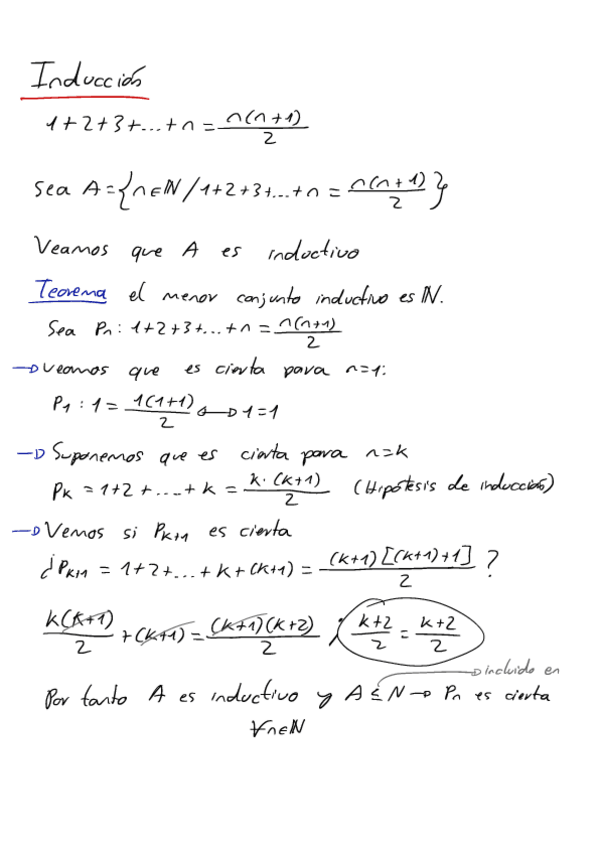 Inducción
1+2+3+...+n = n(n+1)/2
Sea A={n∈ℕ/1+2+3+...+n = n(n+1)/2}
Veamos que A es inductivo
Teorema el menor conjunto inductivo es ℕ.
Sea Pn: 1+2+3+...+n = n(n+1)/2
→ Veamos que es cierta para n=1:
P1: 1 = 1(1+1)/2 ↔ 1=1
→ Suponemos que es cierta para n=k
Pk = 1+2+....+k = k·(k+1)/2 (Hipótesis de inducción)
→ Vemos si Pk+1 es cierta
¿Pk+1 = 1+2+...+k+(k+1) = (k+1)[(k+1)+1]/2?
k(k+1)/2 + (k+1) = (k+1)(k+2)/2 ; k+2/2 = k+2/2
→ incluido en
Por tanto A es inductivo y A ⊆ N → Pn es cierta
∀n∈ℕ